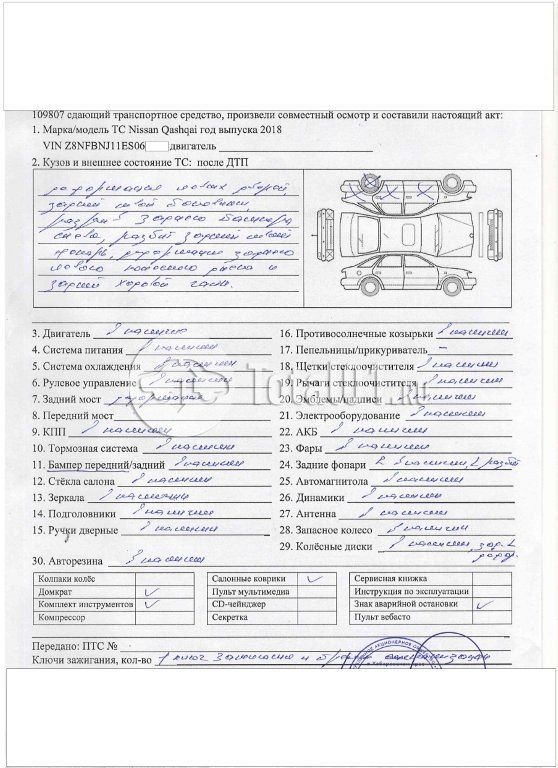 109807 сдающий транспортное средство, произвели совместный осмотр и составили настоящий акт:
1. Марка/модель ТС Nissan Qashqai год выпуска 2018
VIN Z8NFBNJ11ES06 двигатель
2. Кузов и внешнее состояние ТС: после ДТП
деформация левых дверей,
задней левой боковины,
разрыв заднего бампера
слева, разбит задний левый
фонарь, деформация заднего
левого колесного диска и
задней ходовой части.
3. Двигатель В наличии
4. Система питания В наличии
5. Система охлаждения В наличии
6. Рулевое управление В наличии
7. Задний мост деформация
8. Передний мост
9. КПП В наличии
10. Тормозная система В наличии
11. Бампер передний/задний В наличии
12. Стёкла салона В наличии
13. Зеркала В наличии
14. Подголовники В наличии
15. Ручки дверные В наличии
16. Противосолнечные козырьки В наличии
17. Пепельницы/прикуриватель –
18. Щетки стеклоочистителя В наличии
19. Рычаги стеклоочистителя В наличии
20. Эмблемы/надписи В наличии
21. Электрооборудование В наличии
22. АКБ В наличии
23. Фары В наличии
24. Задние фонари R В наличии, L разбит
25. Автомагнитола В наличии
26. Динамики В наличии
27. Антенна В наличии
28. Запасное колесо В наличии
29. Колёсные диски В наличии, зад. L
30. Авторезина В наличии
Колпаки колёс
Домкрат
Комплект инструментов
Компрессор
Салонные коврики
Пульт мультимедиа
CD-чейнджер
Секретка
Сервисная книжка
Инструкция по эксплуатации
Знак аварийной остановки
Пульт вебасто
Передано: ПТС №
Ключи зажигания, кол-во 1 ключ зажигания и брелок сигнализации
Total01.ru